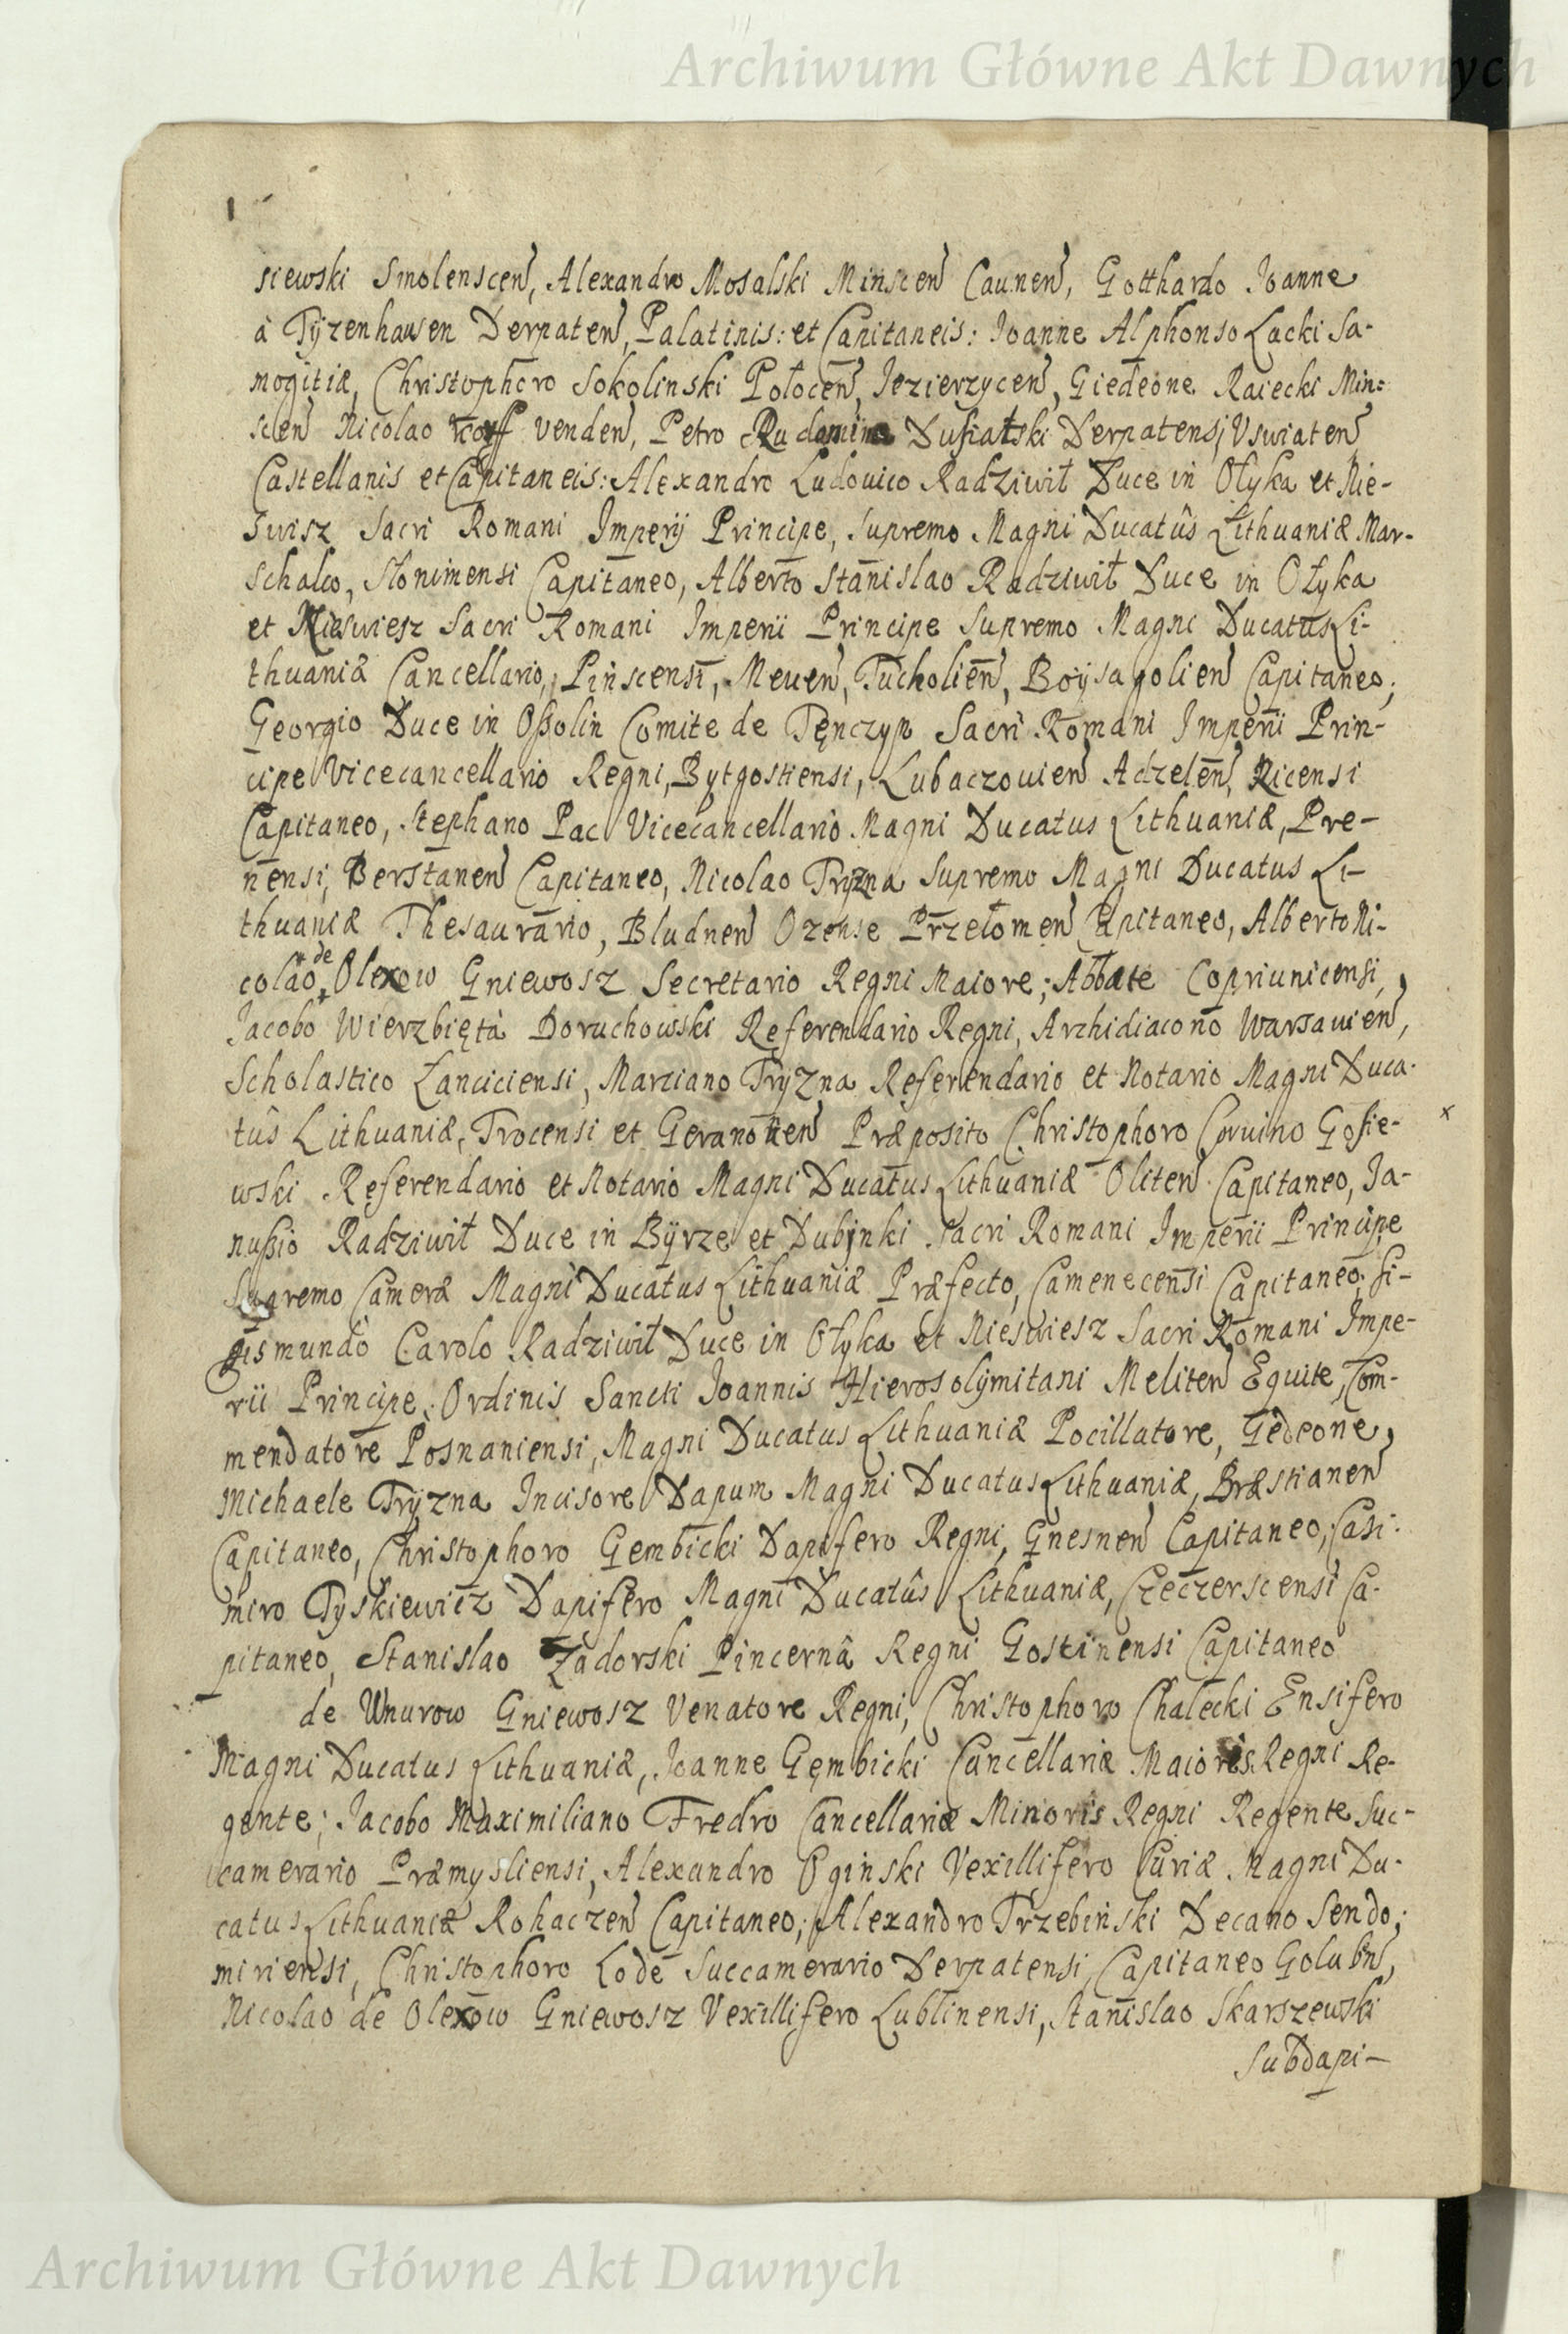 Archiwum Główne Akt Dawnych
siewski Smolenscen, Alexandro Mosalski Minscen Caunen, Gotthardo Joanne
à Tÿzenhausen Derpaten, Palatinis: et Capitaneis: Joanne Alphonso Lacki Sa-
mogitiæ, Christophoro Sokolinski Połocen, Jezierzycen, Giedeone Raiecki Min=
scen Nicolao Korff venden, Petro Rudomina Dusiatski Derpatensi, Vswiaten
Castellanis et Capitaneis: Alexandro Ludouico Radziwił Duce in Ołyka et Nie-
swisz Sacri Romani Imperij Principe, Supremo Magni Ducatûs Lithuaniæ Mar-
schalco, Słonimensi Capitaneo, Alberto Stanislao Radziwił Duce in Ołyka
et Nieswiesz Sacri Romani Imperii Principe Supremo Magni Ducatus Li-
thuaniæ Cancellario, Pinscensi, Meuen, Tucholien, Boÿsagolien Capitaneo,
Georgio Duce in Oßolin Comite de Tęnczyn Sacri Romani Imperii Prin-
cipe Vicecancellario Regni, Bytgostiensi, Lubaczouien Adzelen, Ricensi
Capitaneo, Stephano Pac Vicecancellario Magni Ducatus Lithuaniæ, Pre-
nensi, Berstanen Capitaneo, Nicolao Tryzna Supremo Magni Ducatus Li-
thuaniæ Thesaurario, Bludnen Ozense Przełomen Capitaneo, Alberto Ni-
colao de Olexow Gniewosz Secretario Regni Maiore; Abbate Copriunicensi,
Jacobo Wierzbięta Doruchowski Referendario Regni, Archidiacono Warsauien,
Scholastico Lanciciensi, Marciano Tryzna Referendario et Notario Magni Duca-
tûs Lithuaniæ, Trocensi et Geranonen Præposito Christophoro Coruino Gosie-
wski Referendario et Notario Magni Ducatus Lithuaniæ Oliten Capitaneo, Ja-
nußio Radziwił Duce in Bÿrze et Dubinki Sacri Romani Imperii Principe
Supremo Cameræ Magni Ducatus Lithuaniæ Præfecto, Camenecensi Capitaneo, Si-
gismundo Carolo Radziwił Duce in Ołyka et Nieswiesz Sacri Romani Impe-
rii Principe, Ordinis Sancti Joannis Hierosolÿmitani Meliten Equite, Com-
mendatore Posnaniensi, Magni Ducatus Lithuaniæ Pocillatore, Gedeone,
Michaele Trÿzna Incisore Dapum Magni Ducatus Lithuaniæ, Bræstianen
Capitaneo, Christophoro Gembicki Dapifero Regni, Gnesnen Capitaneo, Casi-
miro Tyskiewicz Dapifero Magni Ducatûs Lithuaniæ, Czeczerscensi Ca-
pitaneo, Stanislao Zadorski Pincernâ Regni Gostinensi Capitaneo
de Unurow Gniewosz Venatore Regni, Christophoro Chalecki Ensifero
Magni Ducatus Lithuaniæ, Joanne Gęmbicki Cancellariæ Maioris Regni Re-
gente; Jacobo Maximiliano Fredro Cancellariæ Minoris Regni Regente Suc-
camerario Præmysliensi, Alexandro Oginski Vexillifero Curiæ Magni Du-
catus Lithuaniæ Rohaczen Capitaneo; Alexandro Trzebinski Decano Sendo,
miriensi, Christophoro Lode Succamerario Derpatensi, Capitaneo Golubn,
Nicolao de Olexow Gniewosz Vexillifero Lublinensi, Stanislao Skarszewski
Subdapi-
Archiwum Główne Akt Dawnych